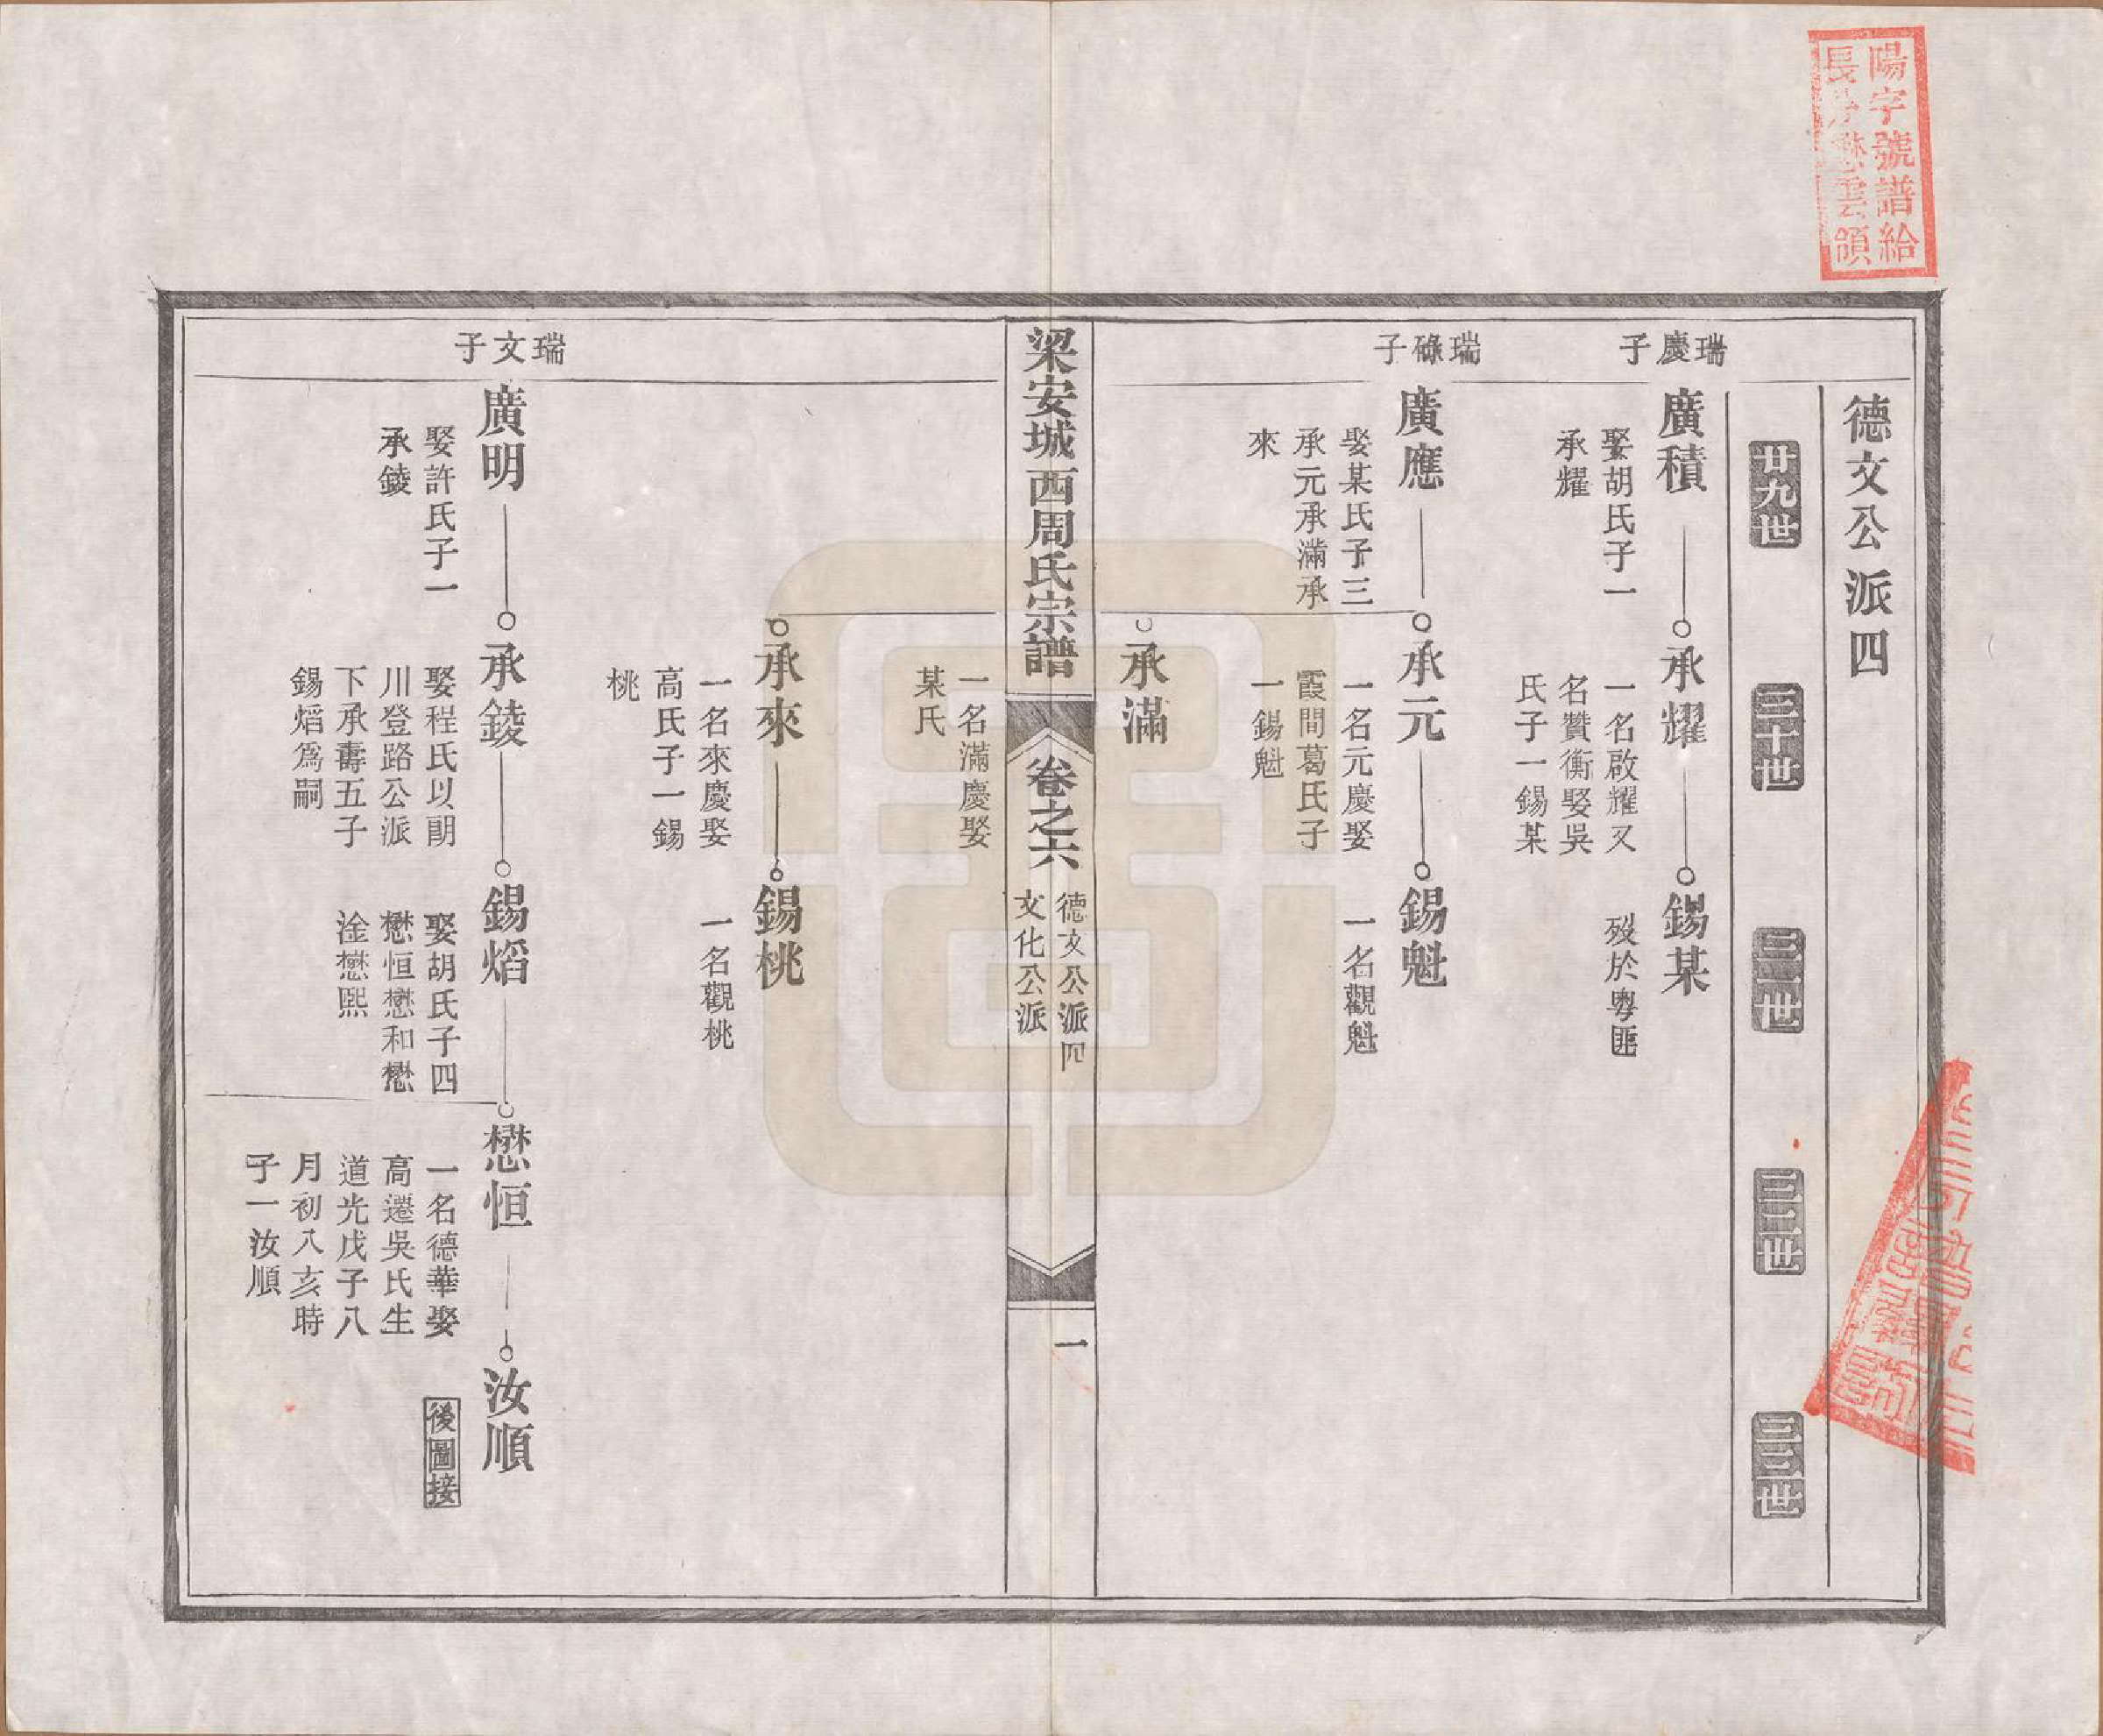 陽字號譜給
雲領
德文公派四
廿九世
三十世
三一世
三二世
三三世
瑞慶子
廣積
娶胡氏子一
承耀
承耀
一名啟耀又
名贊衡娶吳
氏子一錫某
錫某
歿於粵匪
瑞磼子
廣應
娶某氏子三
承元承滿承
來
承元
一名元慶娶
霞間葛氏子
一錫魁
錫魁
一名觀魁
承滿
梁安城西周氏宗譜
卷之六
德文公派四
文化公派
一
一名滿慶娶
某氏
承來
一名來慶娶
高氏子一錫
桃
錫桃
一名觀桃
瑞文子
廣明
娶許氏子一
承錂
承錂
娶程氏以朙
川登路公派
下承壽五子
錫熖為嗣
錫熖
娶胡氏子四
懋恒懋和懋
淦懋熙
懋恒
一名德華娶
高遷吳氏生
道光戊子八
月初八亥時
子一汝順
汝順
後圖接